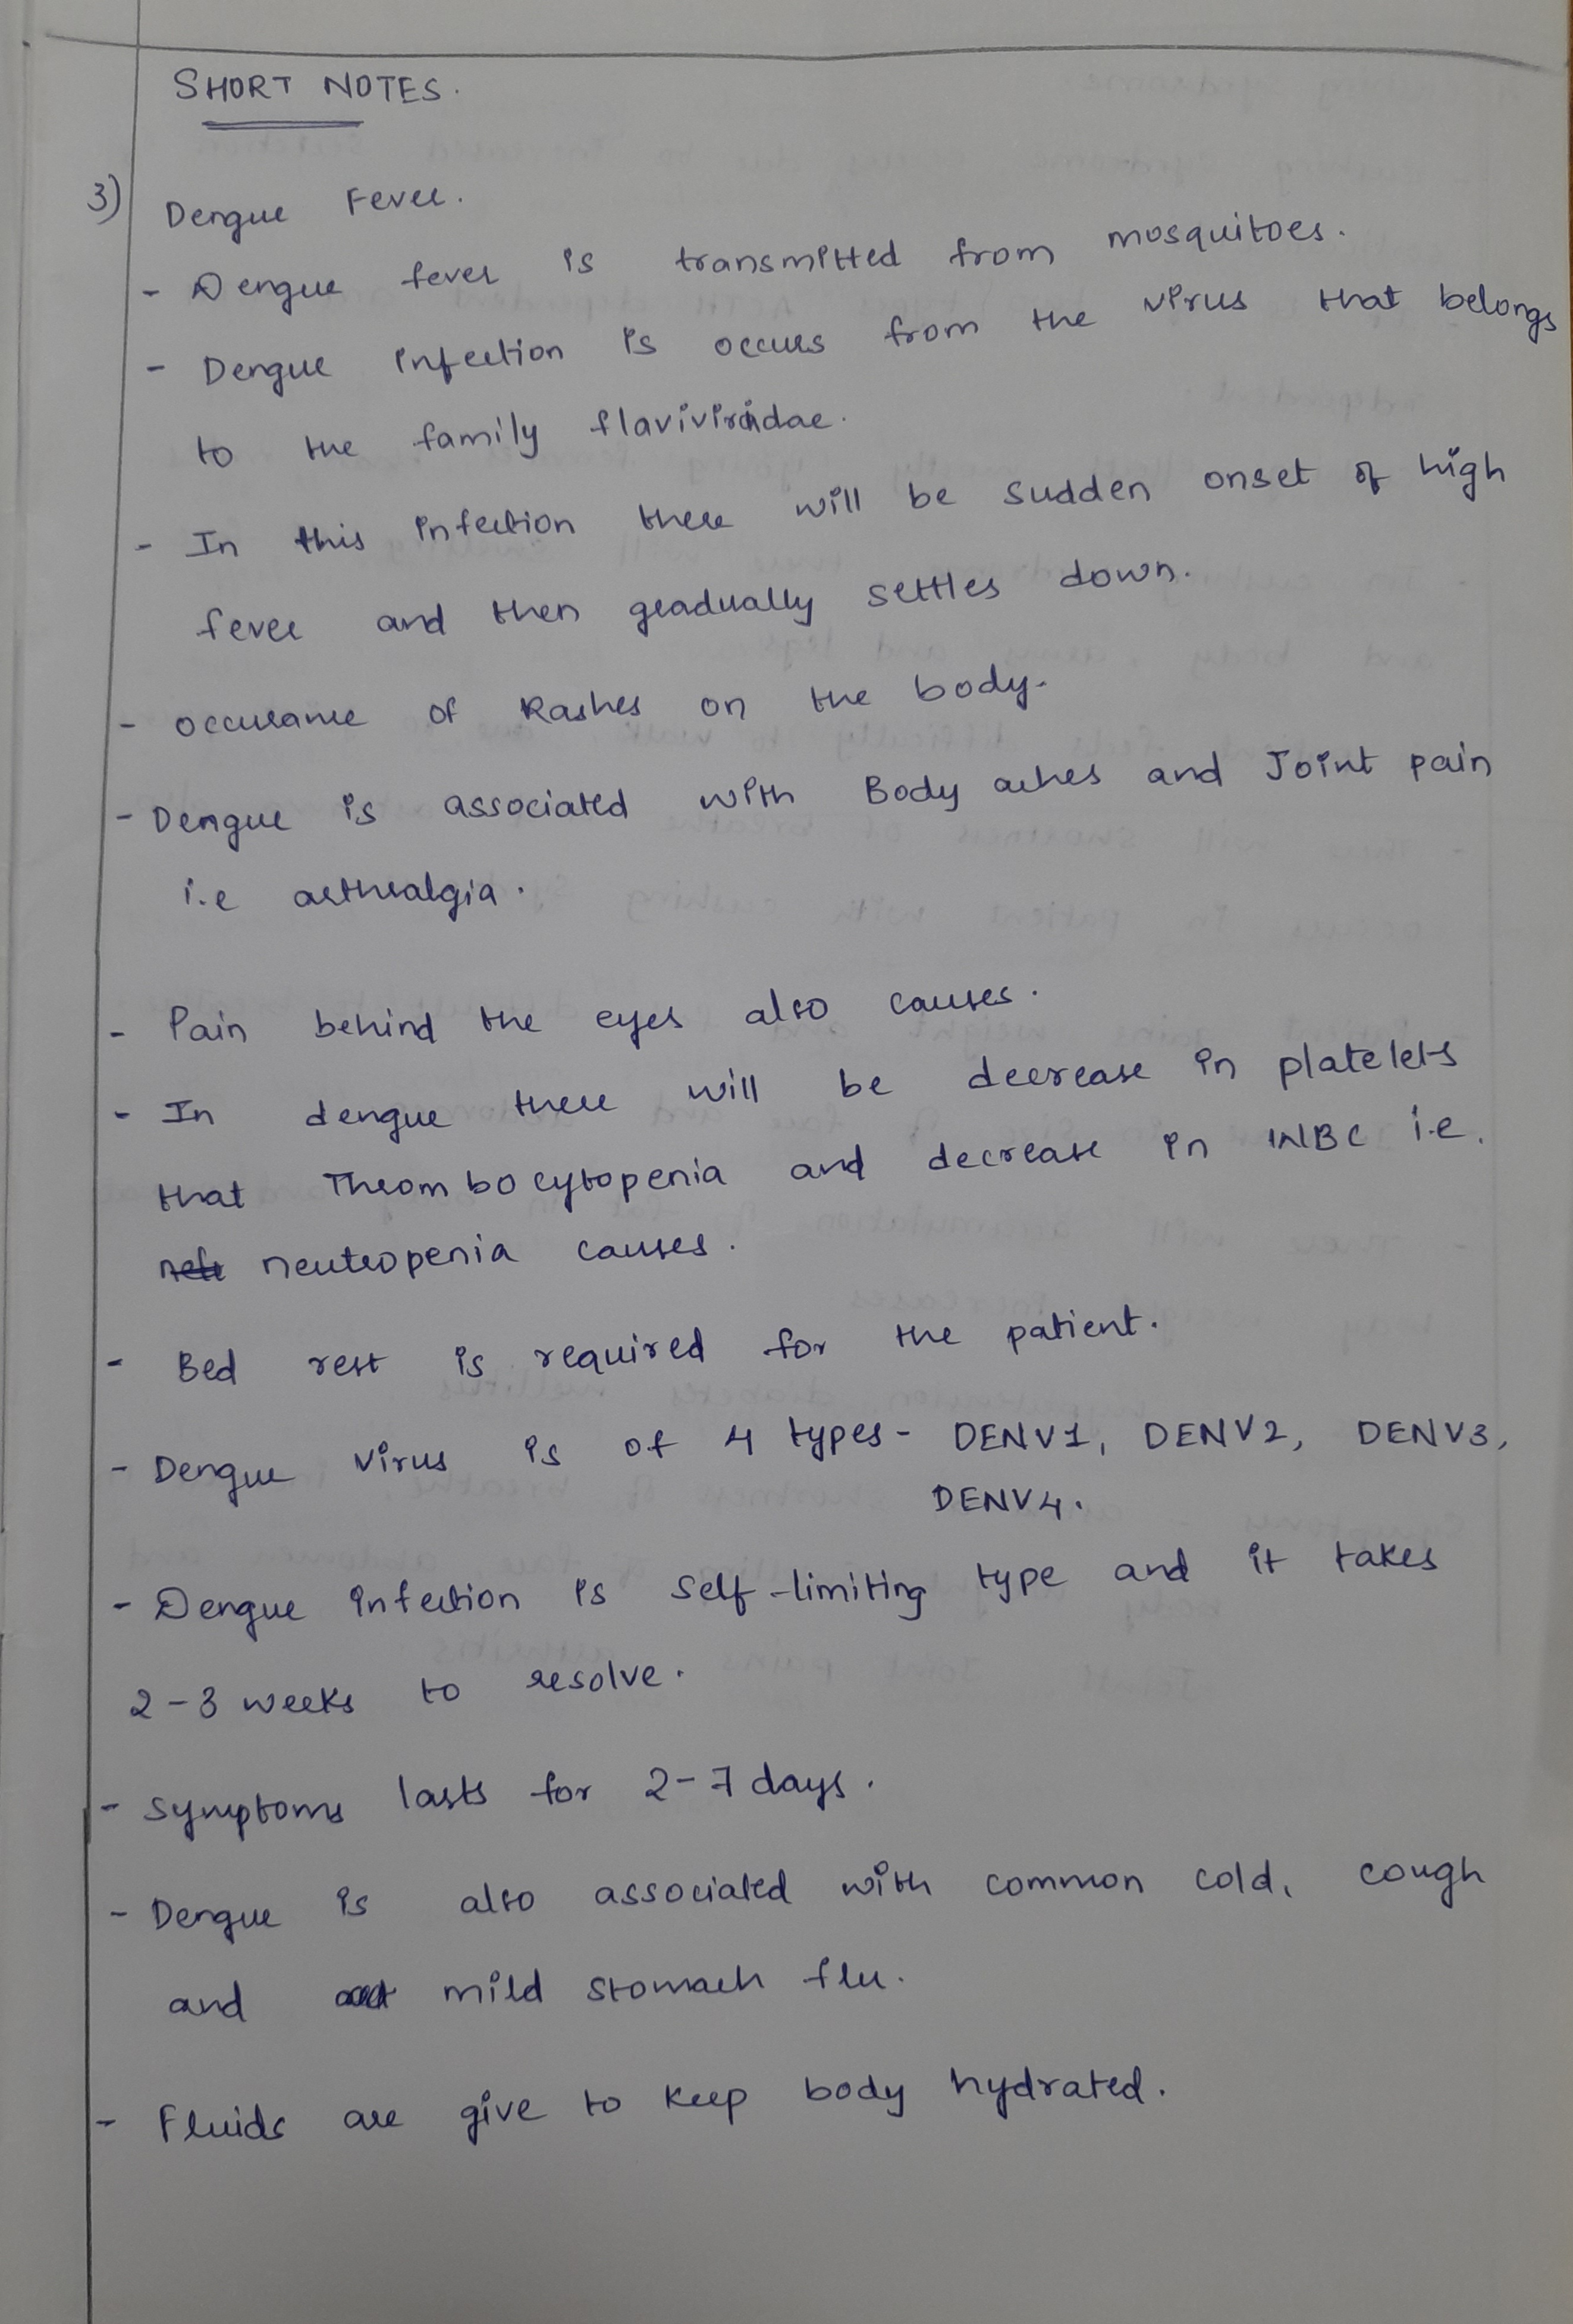 SHORT NOTES.
3) Dengue Fever.
- Dengue fever is transmitted from mosquitoes.
- Dengue infection is occurs from the virus that belongs
to the family flaviviridae.
- In this infection there will be sudden onset of high
fever and then gradually settles down.
- occurance of Rashes on the body.
- Dengue is associated with Body aches and Joint pain
i.e arthralgia.
- Pain behind the eyes also causes.
- In dengue there will be decrease in platelets
that Thrombocytopenia and decrease in WBC i.e.
neutropenia causes.
- Bed rest is required for the patient.
- Dengue virus is of 4 types - DENV1, DENV2, DENV3,
DENV4.
- Dengue infection is self-limiting type and it takes
2-3 weeks to resolve.
- symptoms lasts for 2-7 days.
- Dengue is also associated with common cold, cough
and mild stomach flu.
- Fluids are give to keep body hydrated.